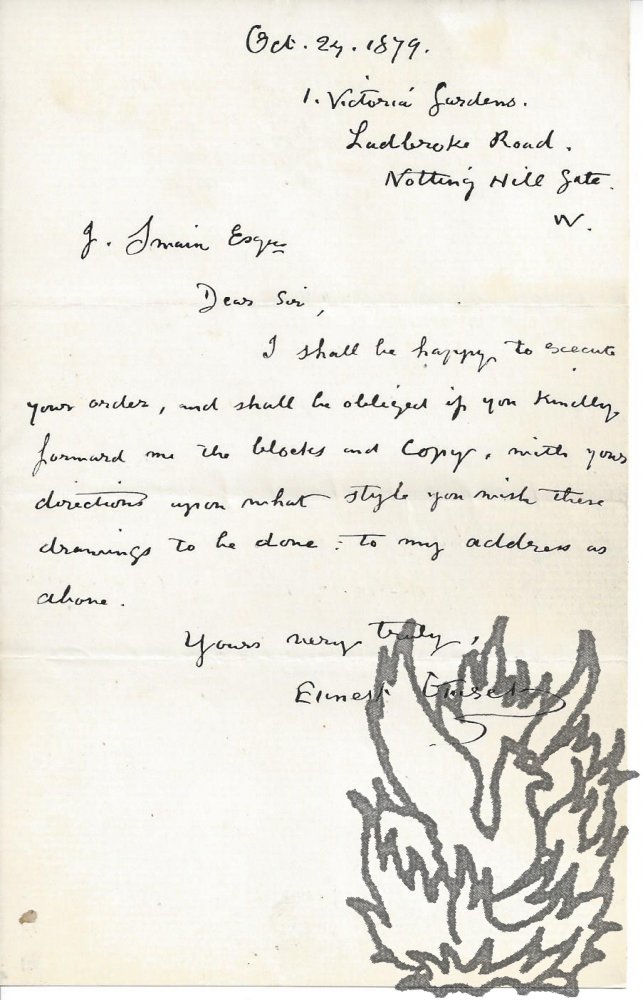 Oct. 24. 1879.
1. Victoria Gardens.
Ladbroke Road.
Notting Hill Gate.
W.
J. Swain Esqre
Dear Sir,
I shall be happy to execute
your order, and shall be obliged if you kindly
forward me the blocks and Copy, with your
directions upon what style you wish these
drawings to be done - to my address as
above.
Yours very truly,
Ernest Griset